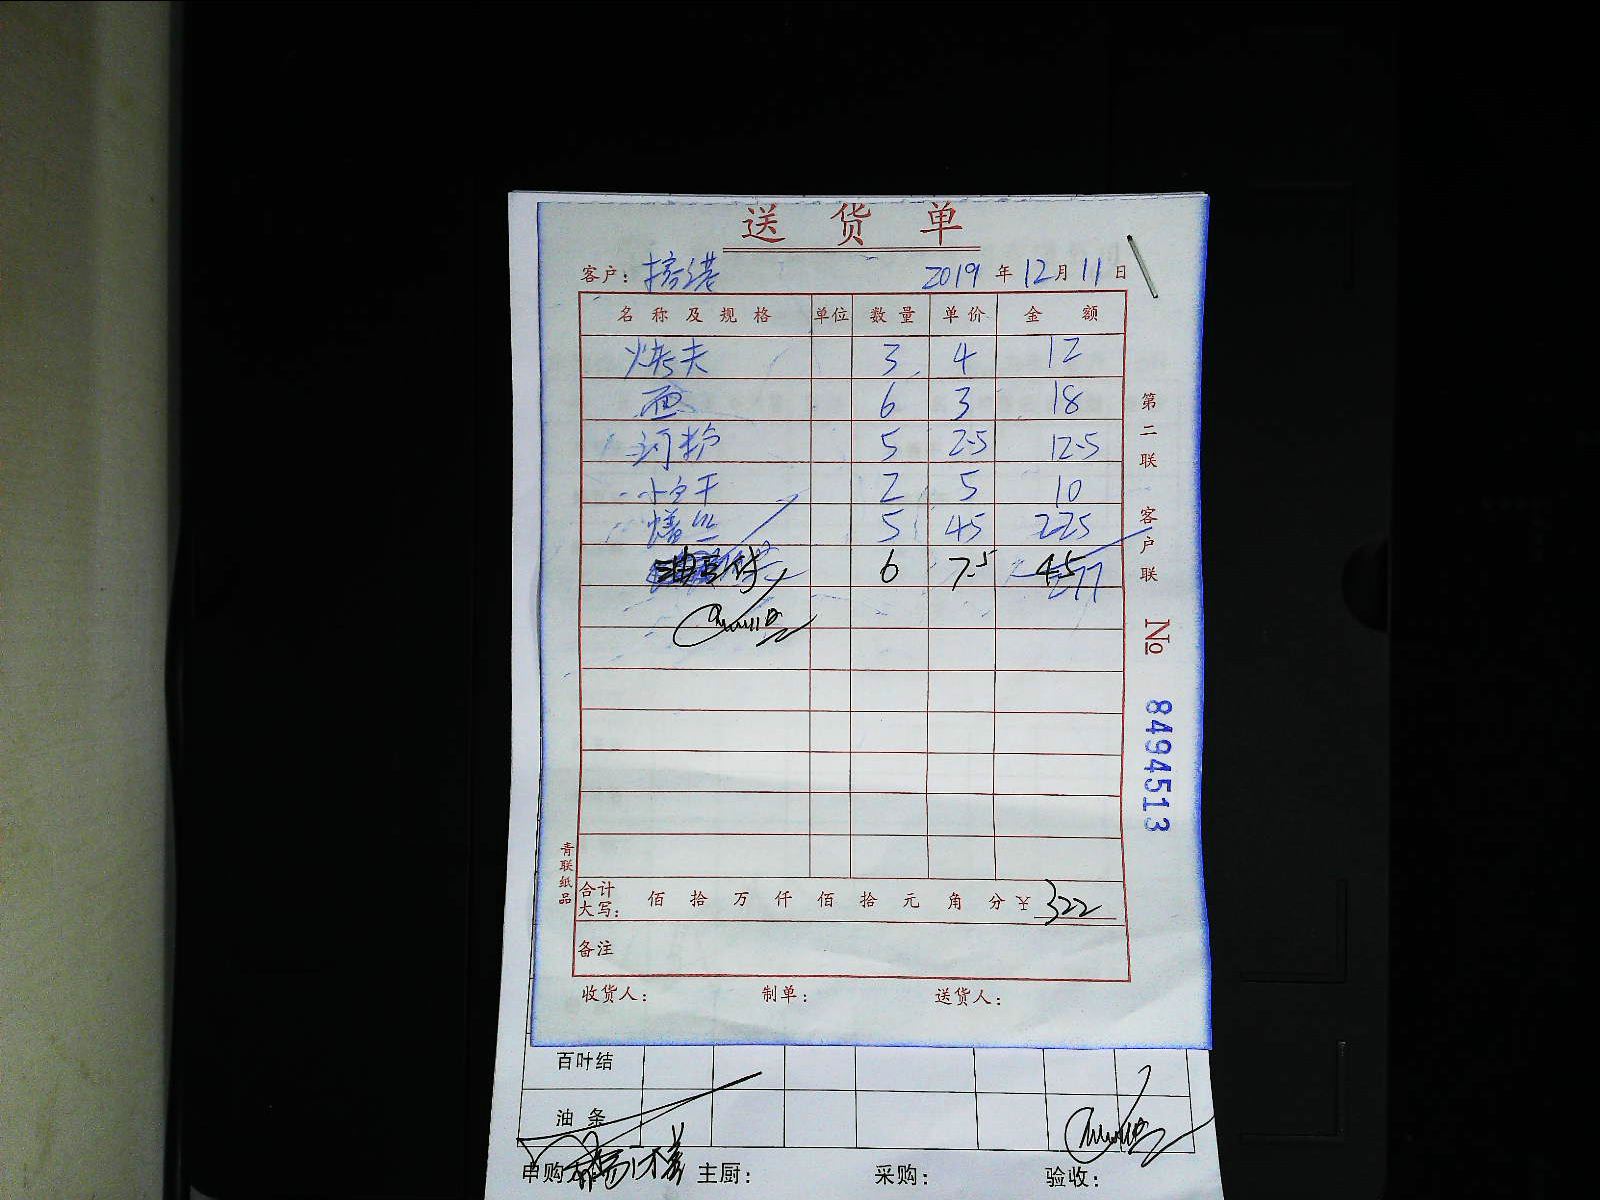 送货单
客户： 2019年12月11日
名称及规格 单位 数量 单价 金额
烤夫 3 4 12
面 6 3 18
河粉 5 2.5 12.5
小白干 2 5 10
鳝丝 5 45 225
油豆 6 7.5 45
277
合计大写： 佰 拾 万 仟 佰 拾 元 角 分 ¥ 322
备注
收货人： 制单： 送货人：
第二联 客户联
№ 8494513
青联纸品
百叶结
油条
申购 主厨： 采购： 验收：